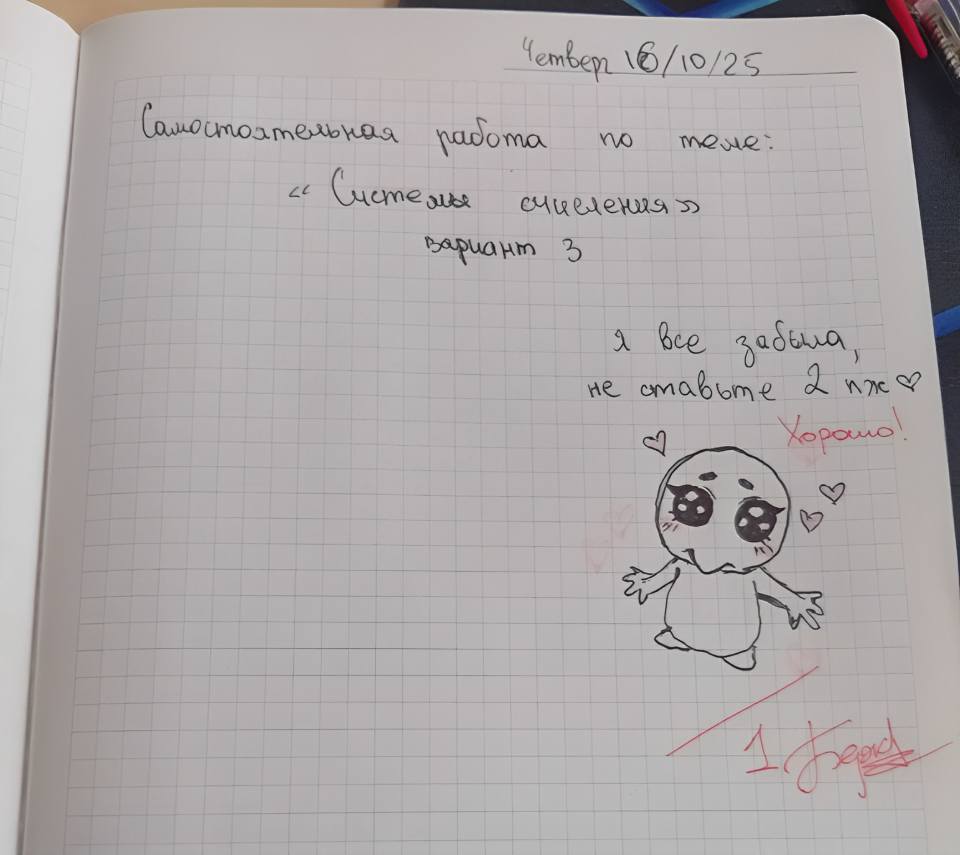 Четверг 16/10/25
Самостоятельная работа по теме:
“Системы счисления»
вариант 3
я все забыла,
не ставьте 2 пж ♡
Хорошо!
1